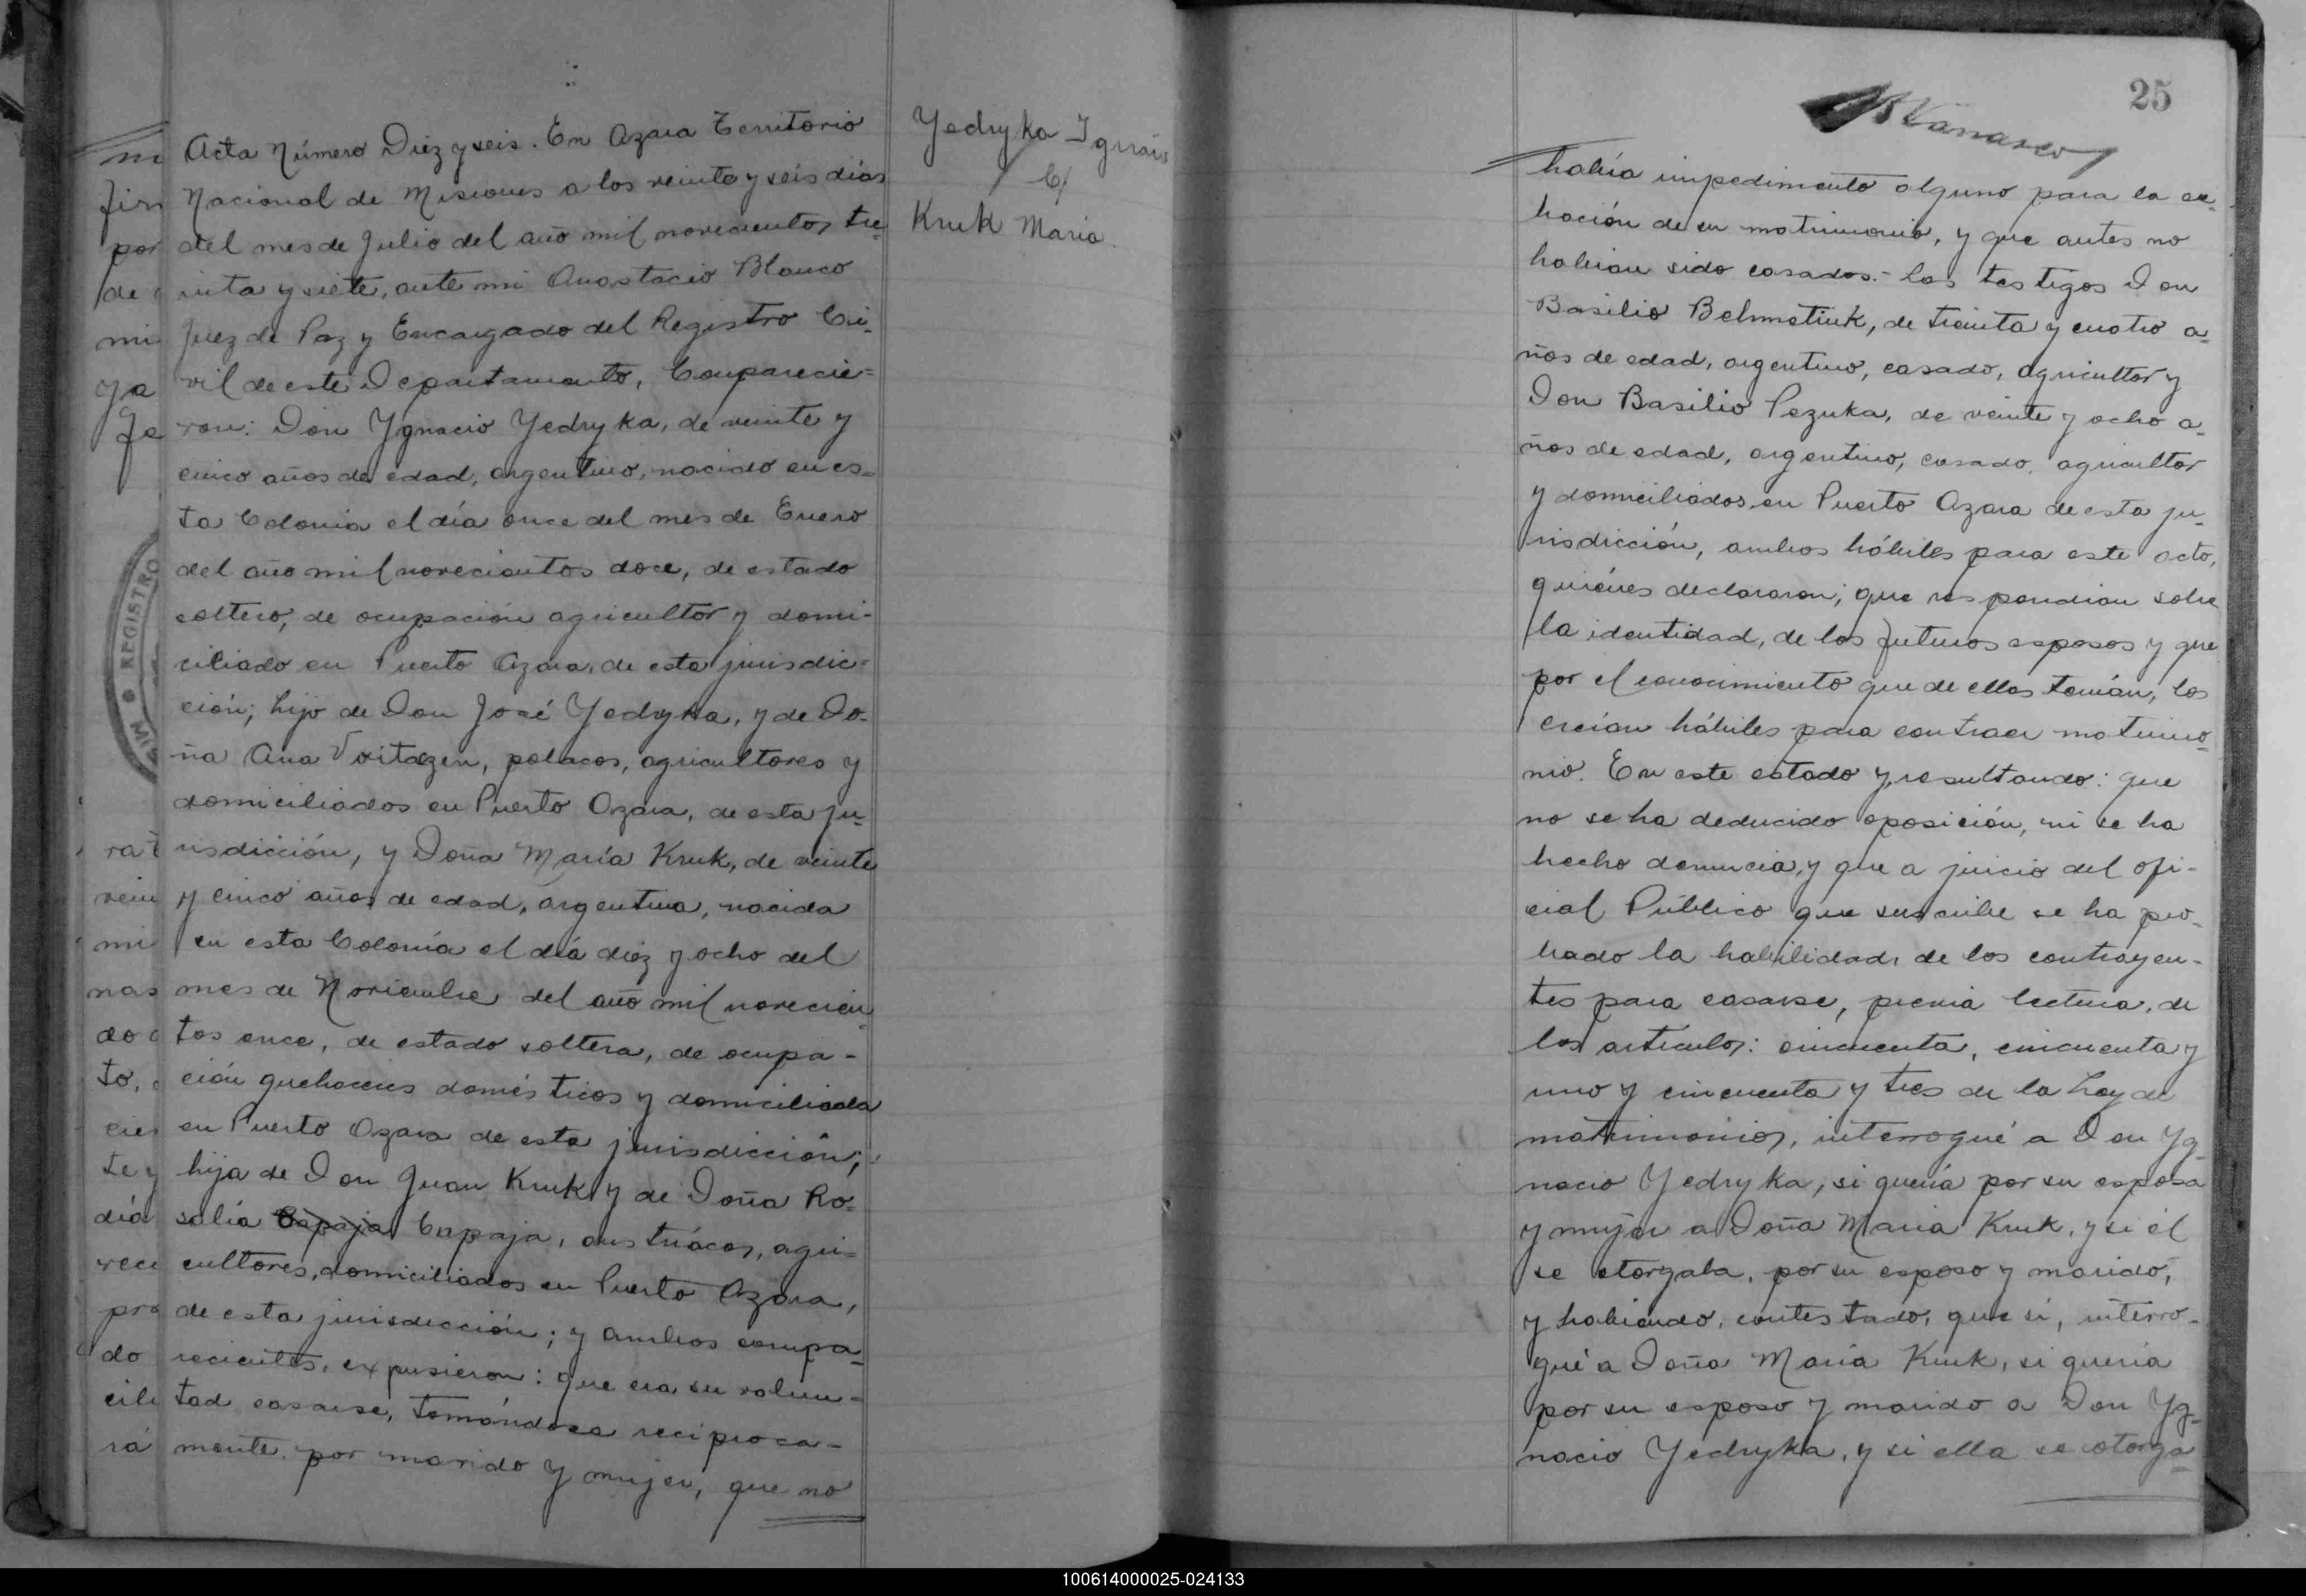 Acta Número Diez y seis. En Azara Territorio
Nacional de Misiones a los veinte y seis días
del mes de Julio del año mil novecientos tre-
inta y siete, ante mi Anastacio Blanco
Juez de Paz y Encargado del Registro Ci-
vil de este Departamento, Comparecie-
ron: Don Ygnacio Yedryka, de veinte y
cinco años de edad, argentino, nacido en es-
ta Colonia el día once del mes de Enero
del año mil novecientos doce, de estado
soltero, de ocupación agricultor y domi-
ciliado en Puerto Azara, de esta jurisdic-
ción; hijo de Don José Yedryka, y de Do-
ña Ana Voitazen, polacos, agricultores y
domiciliados en Puerto Azara, de esta ju-
risdicción, y Doña María Kruk, de veinte
y cinco años de edad, argentina, nacida
en esta Colonia el día diez y ocho del
mes de Noviembre del año mil novecien-
tos once, de estado soltera, de ocupa-
ción quehaceres domésticos y domiciliada
en Puerto Azara de esta jurisdicción;
hija de Don Juan Kruk y de Doña Ro-
salía Capaja Capaja, austriácos, agri-
cultores, domiciliados en Puerto Azara,
de esta jurisdicción; y ambos compa-
recientes, expusieron: que era su volun-
tad casarse, tomándose reciproca-
mente por marido y mujer, que no
Yedryka Ignacio
C/
Kruk Maria.
REGISTRO
ra
vein
mi
nas
do
to,
cien
te y
día
rece
pro
do
cili
rá
fir
por
de
mi
ya
fe
25
había impedimento alguno para la ce-
bración de su matrimonio, y que antes no
habían sido casados.- los testigos Don
Basilio Belmatiuk, de treinta y cuatro a-
ños de edad, argentino, casado, agricultor y
Don Basilio Pezuka, de veinte y ocho a-
ños de edad, argentino, casado, agricultor
y domiciliados en Puerto Azara de esta ju-
risdicción, ambos hábiles para este acto,
quiénes declararon; que respondían sobre
la identidad, de los futuros esposos y que
por el conocimiento que de ellos tenían, los
creían hábiles para contraer matrimo-
nio. En este estado y resultando: que
no se ha deducido oposición, ni se ha
hecho denuncia, y que a juicio del ofi-
cial Público que suscribe se ha pro-
bado la habilidad, de los contrayen-
tes para casarse, previa lectura, de
los artículos: cincuenta, cincuenta y
uno y cincuenta y tres de la Ley de
matrimonios, interrogué a Don Yg-
nacio Yedryka, si quería por su esposa
y mujer a Doña Maria Kruk, y si él
se otorgaba, por su esposo y marido,
y habiendo, contestado, que si, interro-
gué a Doña María Kruk, si quería
por su esposo y marido a Don Yg-
nacio Yedryka, y si ella se otorga-
100614000025-024133